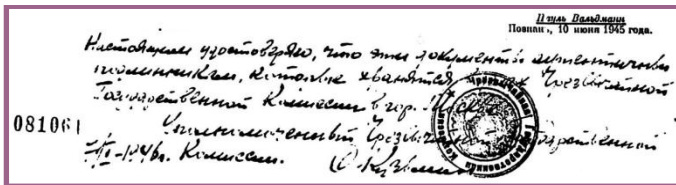 Пауль Вальдманн
Познань, 10 июня 1945 года.
Настоящим удостоверяю, что эти документы аутентичны
подлинникам, которые хранятся в Чрезвычайной
Государственной Комиссии в гор. Москве
081061
Уполномоченный Чрезвычайной Государственной
1946г. Комиссии. Кузьмин